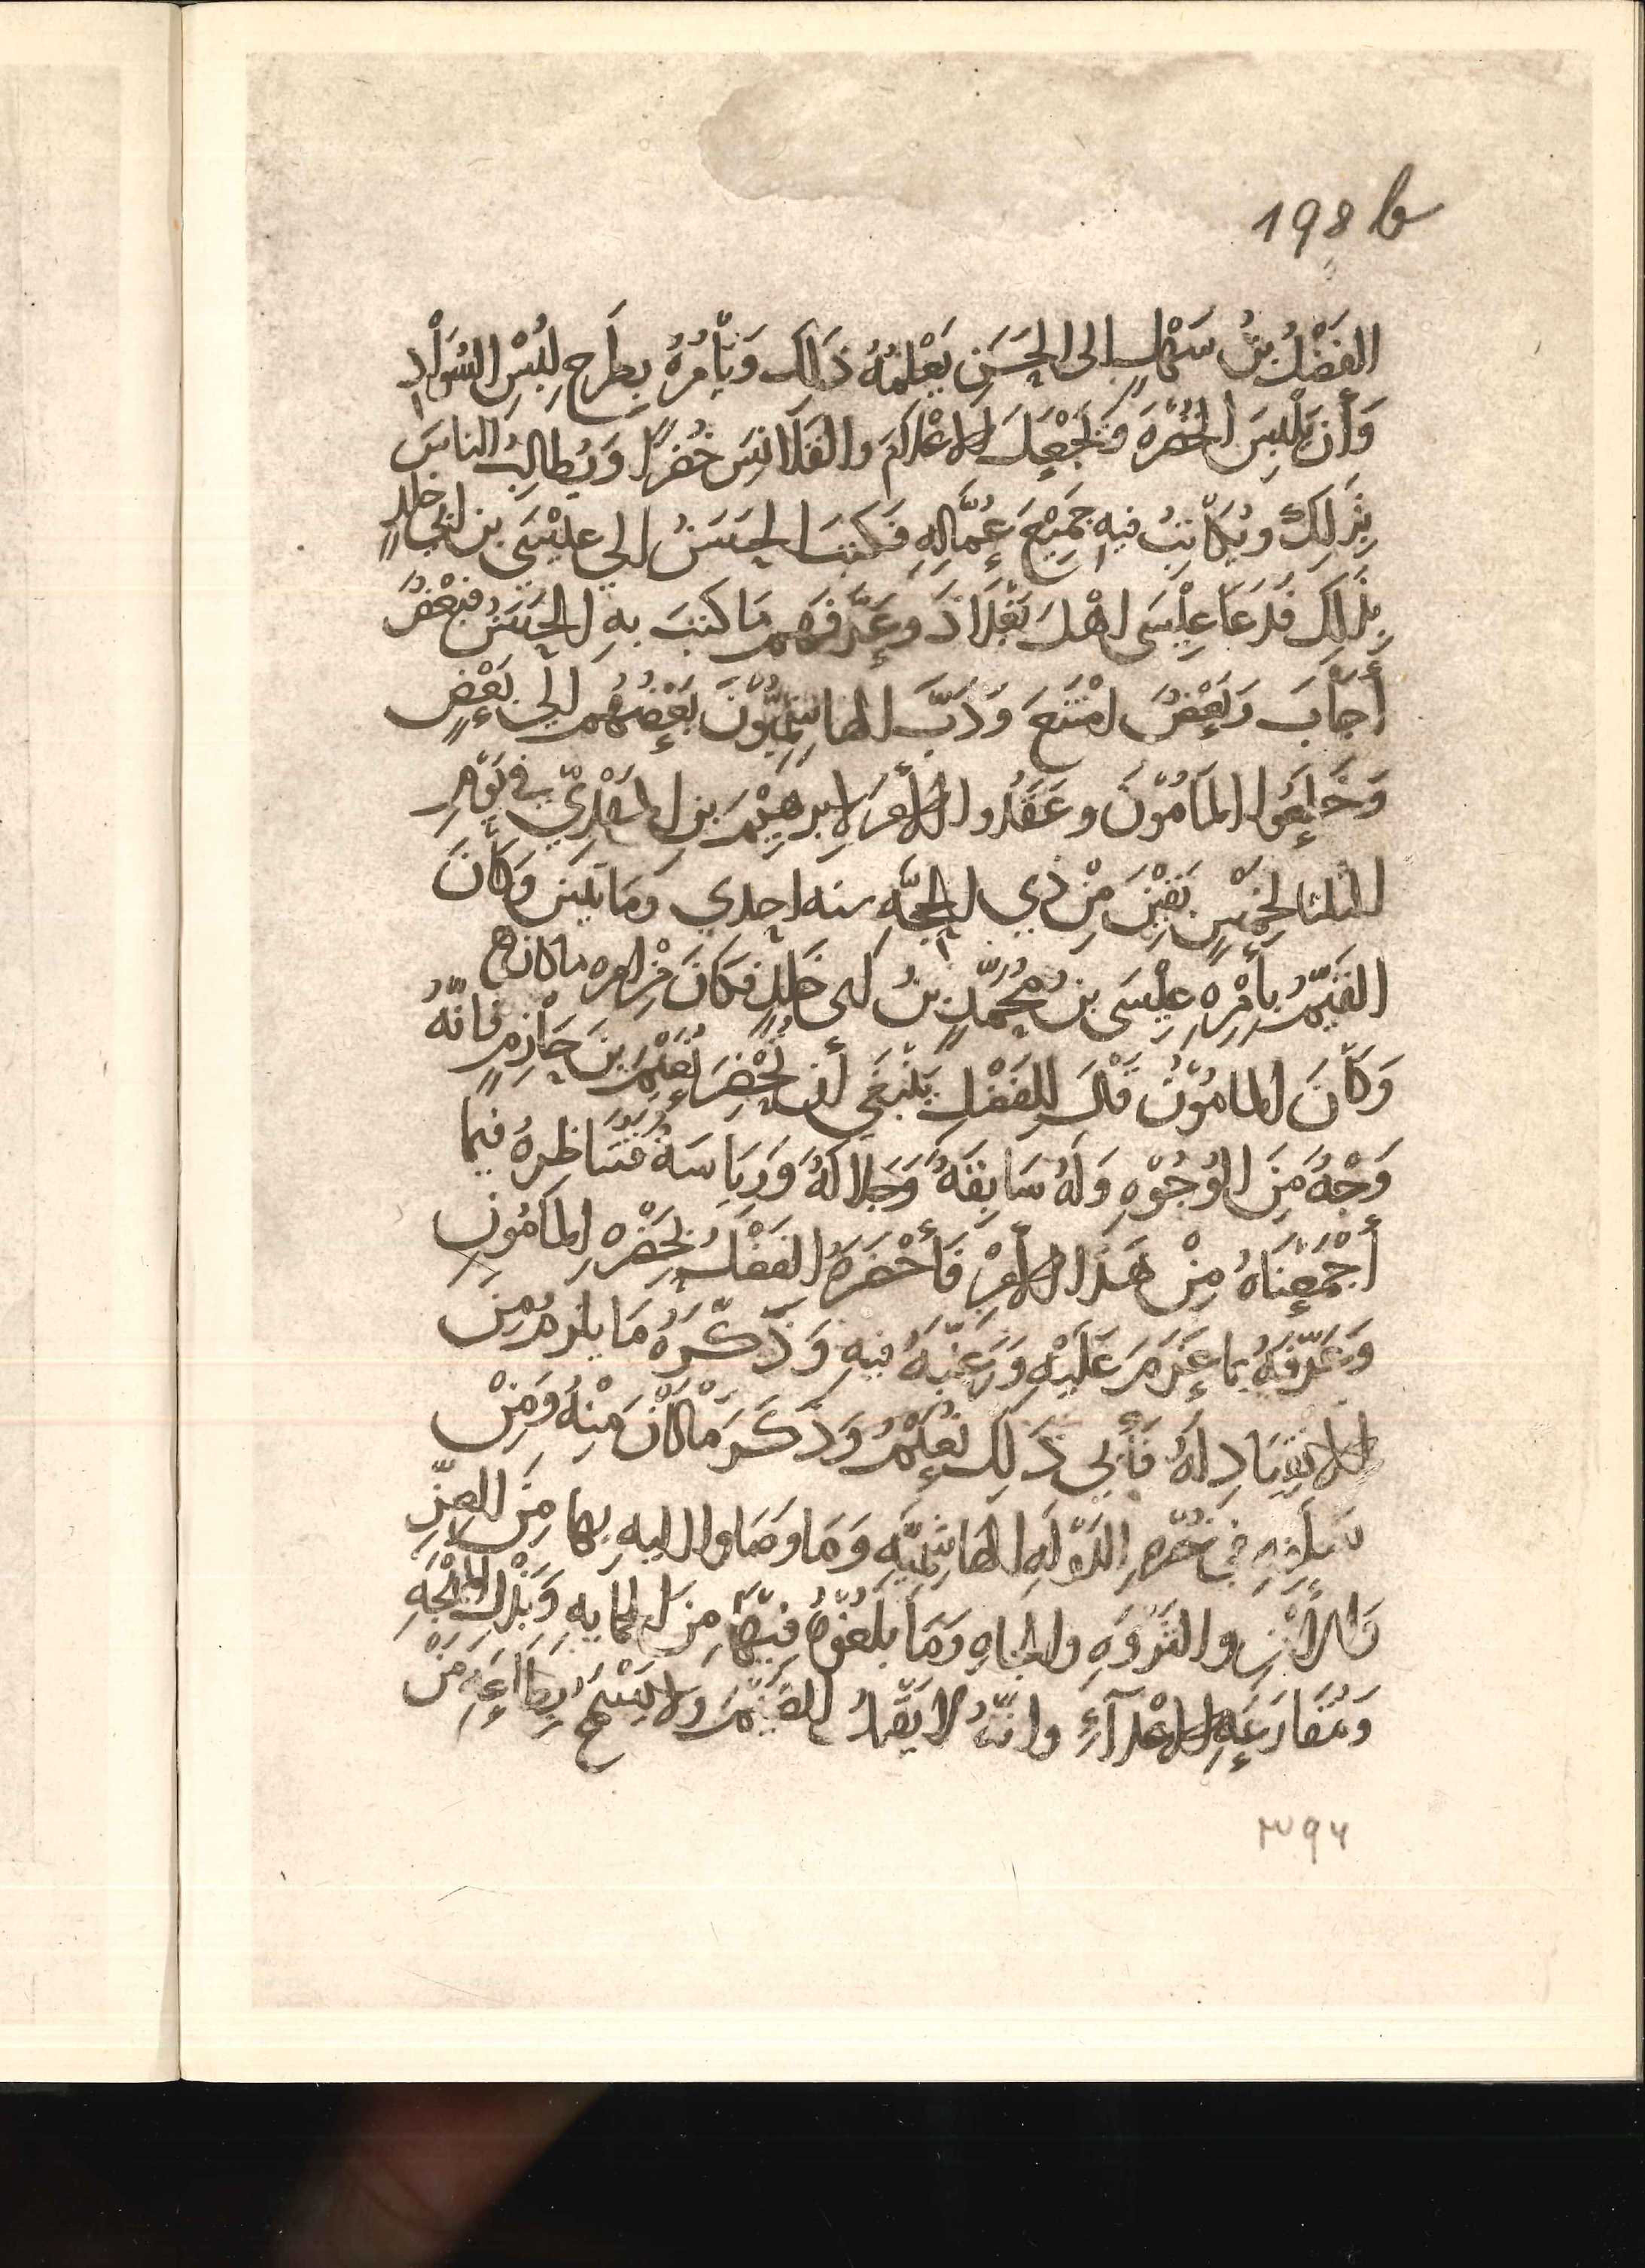 198 b
الفَضْلُ بنُ سَهْلٍ إلى الحَسَنِ يُعْلِمُهُ ذَلِكَ وَيَأْمُرُهُ بِطَرْحِ لُبْسِ السَّوَادِ
وَأَن يَلْبِسَ الخُضْرَةَ وَيَجْعَلَ الاعْلَامَ والقَلَانِسَ خُضْرًا وَيُطَالِبُ الناسَ
بِذَلِكَ ويُكَاتِبُ فيهِ جَمِيْعَ عُمَّالِهِ فَكتبَ الحَسَنُ الي عِيْسَى بن ابي خلدٍ
بِذَلِكَ فَدَعَا عِيْسَى اهْلَ بَغْدَاذَ وعَرَّفَهم مَا كتبَ بهِ الحَسَنُ فبَعْضٌ
أَجَابَ وَبَعْضٌ امْتَنَعَ وَدَبَّ الهاشِمِيُّوْنَ بَعْضُهُم اليَ بَعْضٍ
وَخَلَعُوا المَامُوْنَ وعَقَدُوا الأمرَ لابرهِيْمَ بنِ المَهْدِيِّ في يَوْمِ
الثلثا لِخَمْسٍ بَقِيْنَ مِنْ ذِي الحِجَّهِ سنه احدي ومَايتَينَ وَكَانَ
القَيِّمُ بأَمْرِهِ عِيْسَى بنُ مُحَمَّدٍ بنُ ابى خَلِدٍ فكَانَ مِن امره ما كان
وَكَانَ المامُوْنُ قَالَ لِلفَضْلِ يَنْبَغِي أَن نُحْضِرَ نُعَيْمَ بنَ حَازِمٍ فانَّهُ
وَجْهٌ مِنَ الوُجُوْهِ وَلَهُ سَابِقَةٌ وَجَلَالَةٌ وَرِيَاسَةٌ فَنُنَاظِرهُ فيما
أَجْمَعْنَاهُ مِنْ هَذَا الأمْرِ فَأَحْضَرَهُ الفَضْلُ بِحَضْرَهِ المَامُونِ
وَعَرَّفَهُ ما عَزَمَ عَلَيْهِ وَرَغَّبَهُ فيهِ وَذَكَّرَهُ مَا يلزمُهُ مِنَ
الانقِيَادِ لهُ فَأَبى ذَلِكَ نُعَيْمٌ وَذَكَرَ مَا كَانَ مِنْهُ ومِنْ
سَلَفِهِ في نُصْرَهِ الدَّوْلَهِ الهَاشِمِيَّهِ وَمَا وصَلوا اليهِ بها مِنَ العِزِّ
وَالأَمْنِ والثَرْوَهِ والجَاهِ وَمَا بَلَغُوْهُ فِيْهَا مِنَ المايهِ وَبَذْلِ المُهْجَهِ
وَمُقَارَعَهِ الاعْدَآءِ وانَّهُ لا يَقْبَلُ الضَيْمَ ولا يَسْمَحُ بِطَاعَهِ مَنْ
٣٩٤